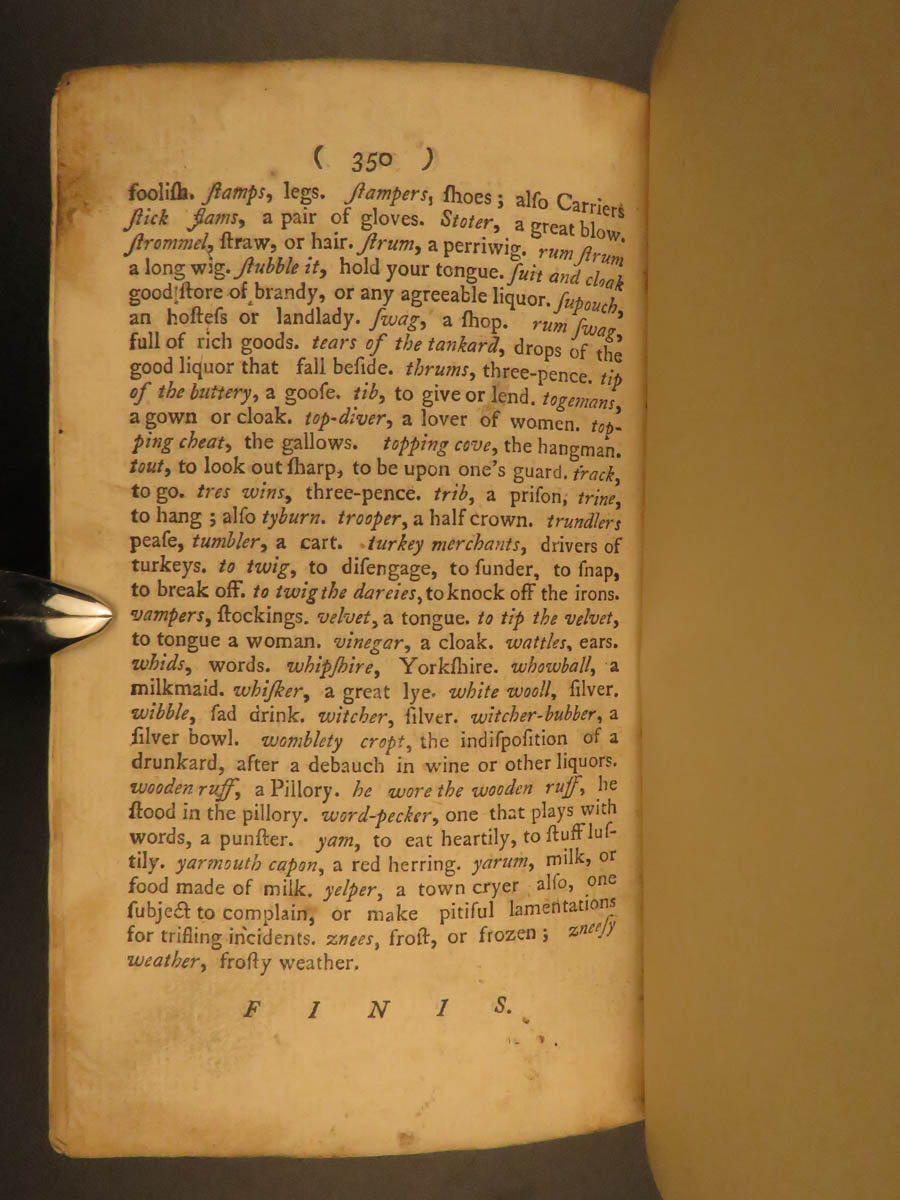 ( 350 )
fooliſh. ſtamps, legs. ſtampers, ſhoes; alſo Carriers
ſtick flams, a pair of gloves. Stoter, a great blow.
ſtrommel, ſtraw, or hair. ſtrum, a perriwig. rum ſtrum
a long wig. ſtubble it, hold your tongue. ſuit and cloak
good ſtore of brandy, or any agreeable liquor. ſupouch,
an hoſteſs or landlady. ſwag, a ſhop. rum ſwag,
full of rich goods. tears of the tankard, drops of the
good liquor that fall beſide. thrums, three-pence. tip
of the buttery, a gooſe. tib, to give or lend. togemans,
a gown or cloak. top-diver, a lover of women. top-
ping cheat, the gallows. topping cove, the hangman.
tout, to look out ſharp, to be upon one's guard. track,
to go. tres wins, three-pence. trib, a priſon, trine,
to hang; alſo tyburn. trooper, a half crown. trundlers
peaſe, tumbler, a cart. turkey merchants, drivers of
turkeys. to twig, to diſengage, to ſunder, to ſnap,
to break off. to twig the dareies, to knock off the irons.
vampers, ſtockings. velvet, a tongue. to tip the velvet,
to tongue a woman. vinegar, a cloak. wattles, ears.
whids, words. whipſhire, Yorkſhire. whowball, a
milkmaid. whiſker, a great lye. white wooll, ſilver.
wibble, ſad drink. witcher, ſilver. witcher-bubber, a
ſilver bowl. womblety cropt, the indiſpoſition of a
drunkard, after a debauch in wine or other liquors.
wooden ruff, a Pillory. he wore the wooden ruff, he
ſtood in the pillory. word-pecker, one that plays with
words, a punſter. yam, to eat heartily, to ſtuff luſ-
tily. yarmouth capon, a red herring. yarum, milk, or
food made of milk. yelper, a town cryer alſo, one
ſubject to complain, or make pitiful lamentations
for trifling incidents. znees, froſt, or frozen; zneeſy
weather, froſty weather.
F I N I S.